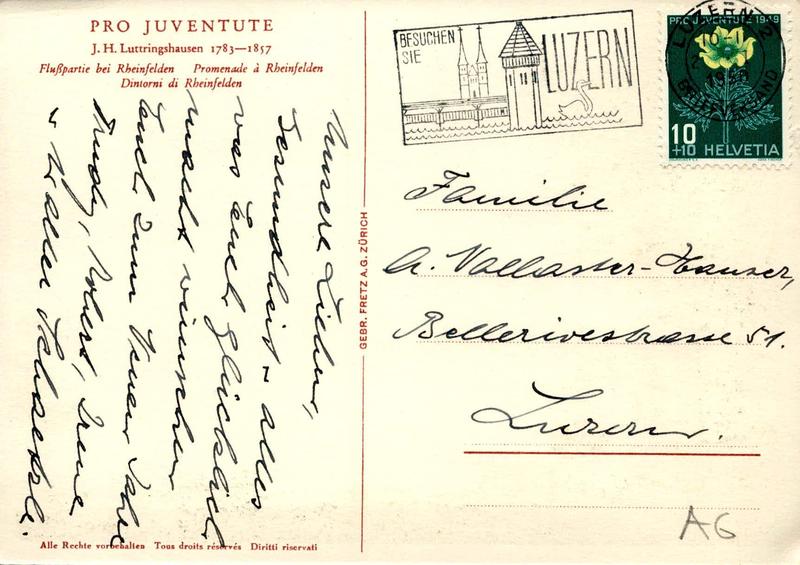 PRO JUVENTUTE
J. H. Luttringshausen 1783—1857
Flußpartie bei Rheinfelden Promenade à Rheinfelden
Dintorni di Rheinfelden
Unsere Lieben,
Gesundheit & alles
was Euch glücklich
macht wünschen
Euch zum Neuen Jahre
Trudy, Robert, Irene
& Walter
Alle Rechte vorbehalten Tous droits réservés Diritti riservati
GEBR. FRETZ A.G. ZÜRICH
BESUCHEN
SIE
LUZERN
LUZERN 2
BRIEFVERSAND
PRO JUVENTUTE 1949
10
+10 HELVETIA
Familie
A. Vallaster-Hauser,
Bellerivestrasse 51.
Luzern.
AG